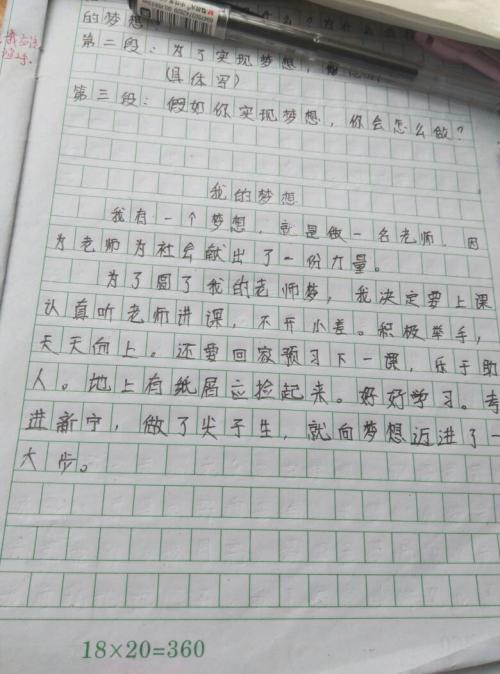 的梦想
第二段：为了实现梦想，
（具体写）
第三段：假如你实现梦想，你会怎么做？
我的梦想
我有一个梦想，就是做一名老师。因
为老师为社会献出了一份力量。
为了圆了我的老师梦，我决定要上课
认真听老师讲课，不开小差。积极举手，
天天向上。还要回家预习下一课，乐于助
人。地上有纸屑应捡起来。好好学习。考
进新宁，做了尖子生，就向梦想迈进了一
大步。
18×20=360